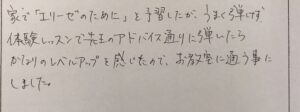 家で「エリーゼのために」を予習したが、うまく弾けず
体験レッスンで先生のアドバイス通りに弾いたら
かなりのレベルアップを感じたので、お教室に通う事に
しました。